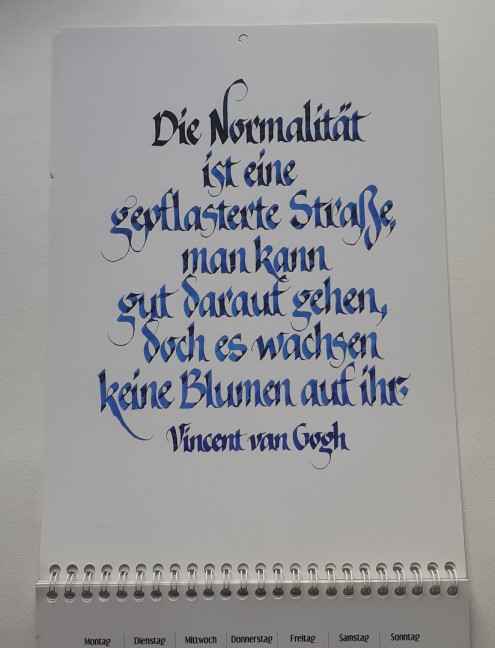 Die Normalität
ist eine
gepflasterte Straße,
man kann
gut darauf gehen,
doch es wachsen
keine Blumen auf ihr.
Vincent van Gogh
Montag Dienstag Mittwoch Donnerstag Freitag Samstag Sonntag